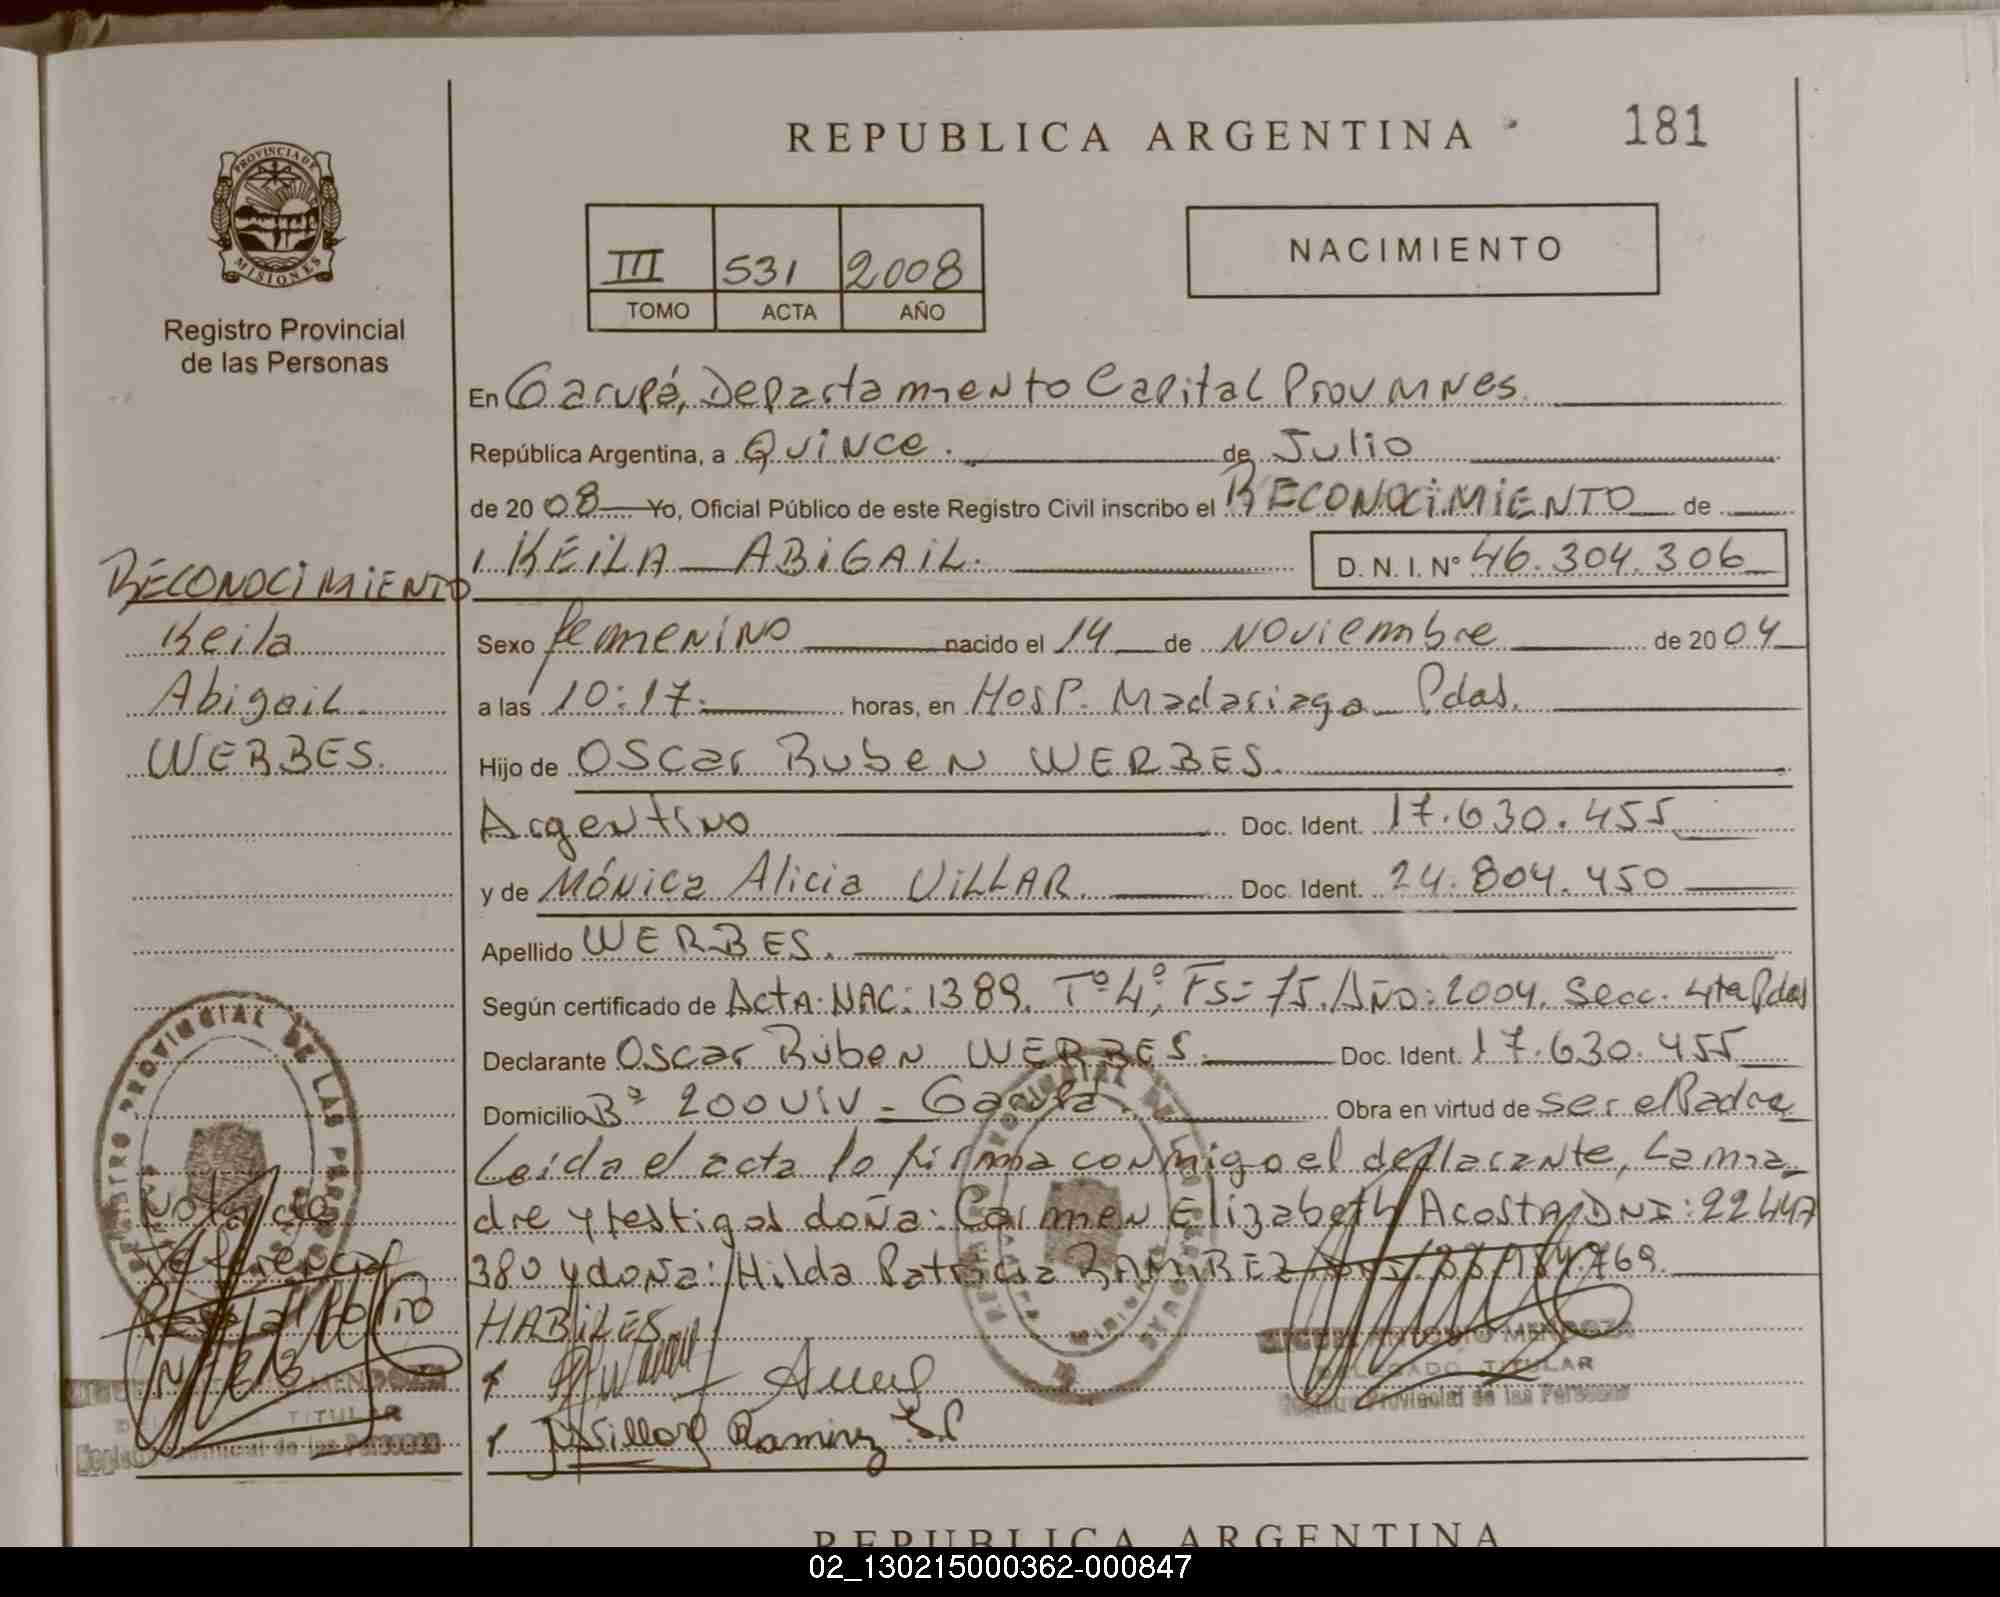 REPUBLICA ARGENTINA
181
PROVINCIA DE
MISIONES
Registro Provincial
de las Personas
III 531 2008
TOMO ACTA AÑO
NACIMIENTO
En Garupá, Departamiento Capital Prov MNes.
República Argentina, a Quince. de Julio
de 2008 Yo, Oficial Público de este Registro Civil inscribo el RECONOCIMIENTO de
KEILA ABIGAIL. D. N. I. Nº 46.304.306
RECONOCIMIENTO
Keila
Abigail
WERBES.
Sexo femenino nacido el 14 de Noviembre de 2004
a las 10:17. horas, en Hosp. Madariaga Pdas.
Hijo de Oscar Ruben WERBES.
Argentino Doc. Ident. 17.630.455
y de Mónica Alicia VILLAR. Doc. Ident. 24.804.450
Apellido WERBES.
Según certificado de Acta. NAC: 1389. Tº 4º, Fs= 75. Año: 2004. Secc. 4ta Pdas
Declarante Oscar Ruben WERBES. Doc. Ident. 17.630.455
Domicilio Bº 200 Viv - Garupá. Obra en virtud de ser el Padre
Leida el acta lo firma conmigo el declarante, La ma-
dre y testigos doña: Carmen Elizabeth ACOSTA, DNI: 22.447
380 y doña: Hilda Patricia RAMIREZ
HABILES.
REGISTRO PROVINCIAL DE LAS PERSONAS
Nota de
referencia
MIGUEL ANTONIO MENDOZA
DELEGADO TITULAR
Registro Provincial de las Personas
TITULAR
Registro Provincial de las Personas
Villar Ramirez
REPUBLICA ARGENTINA
02_130215000362-000847